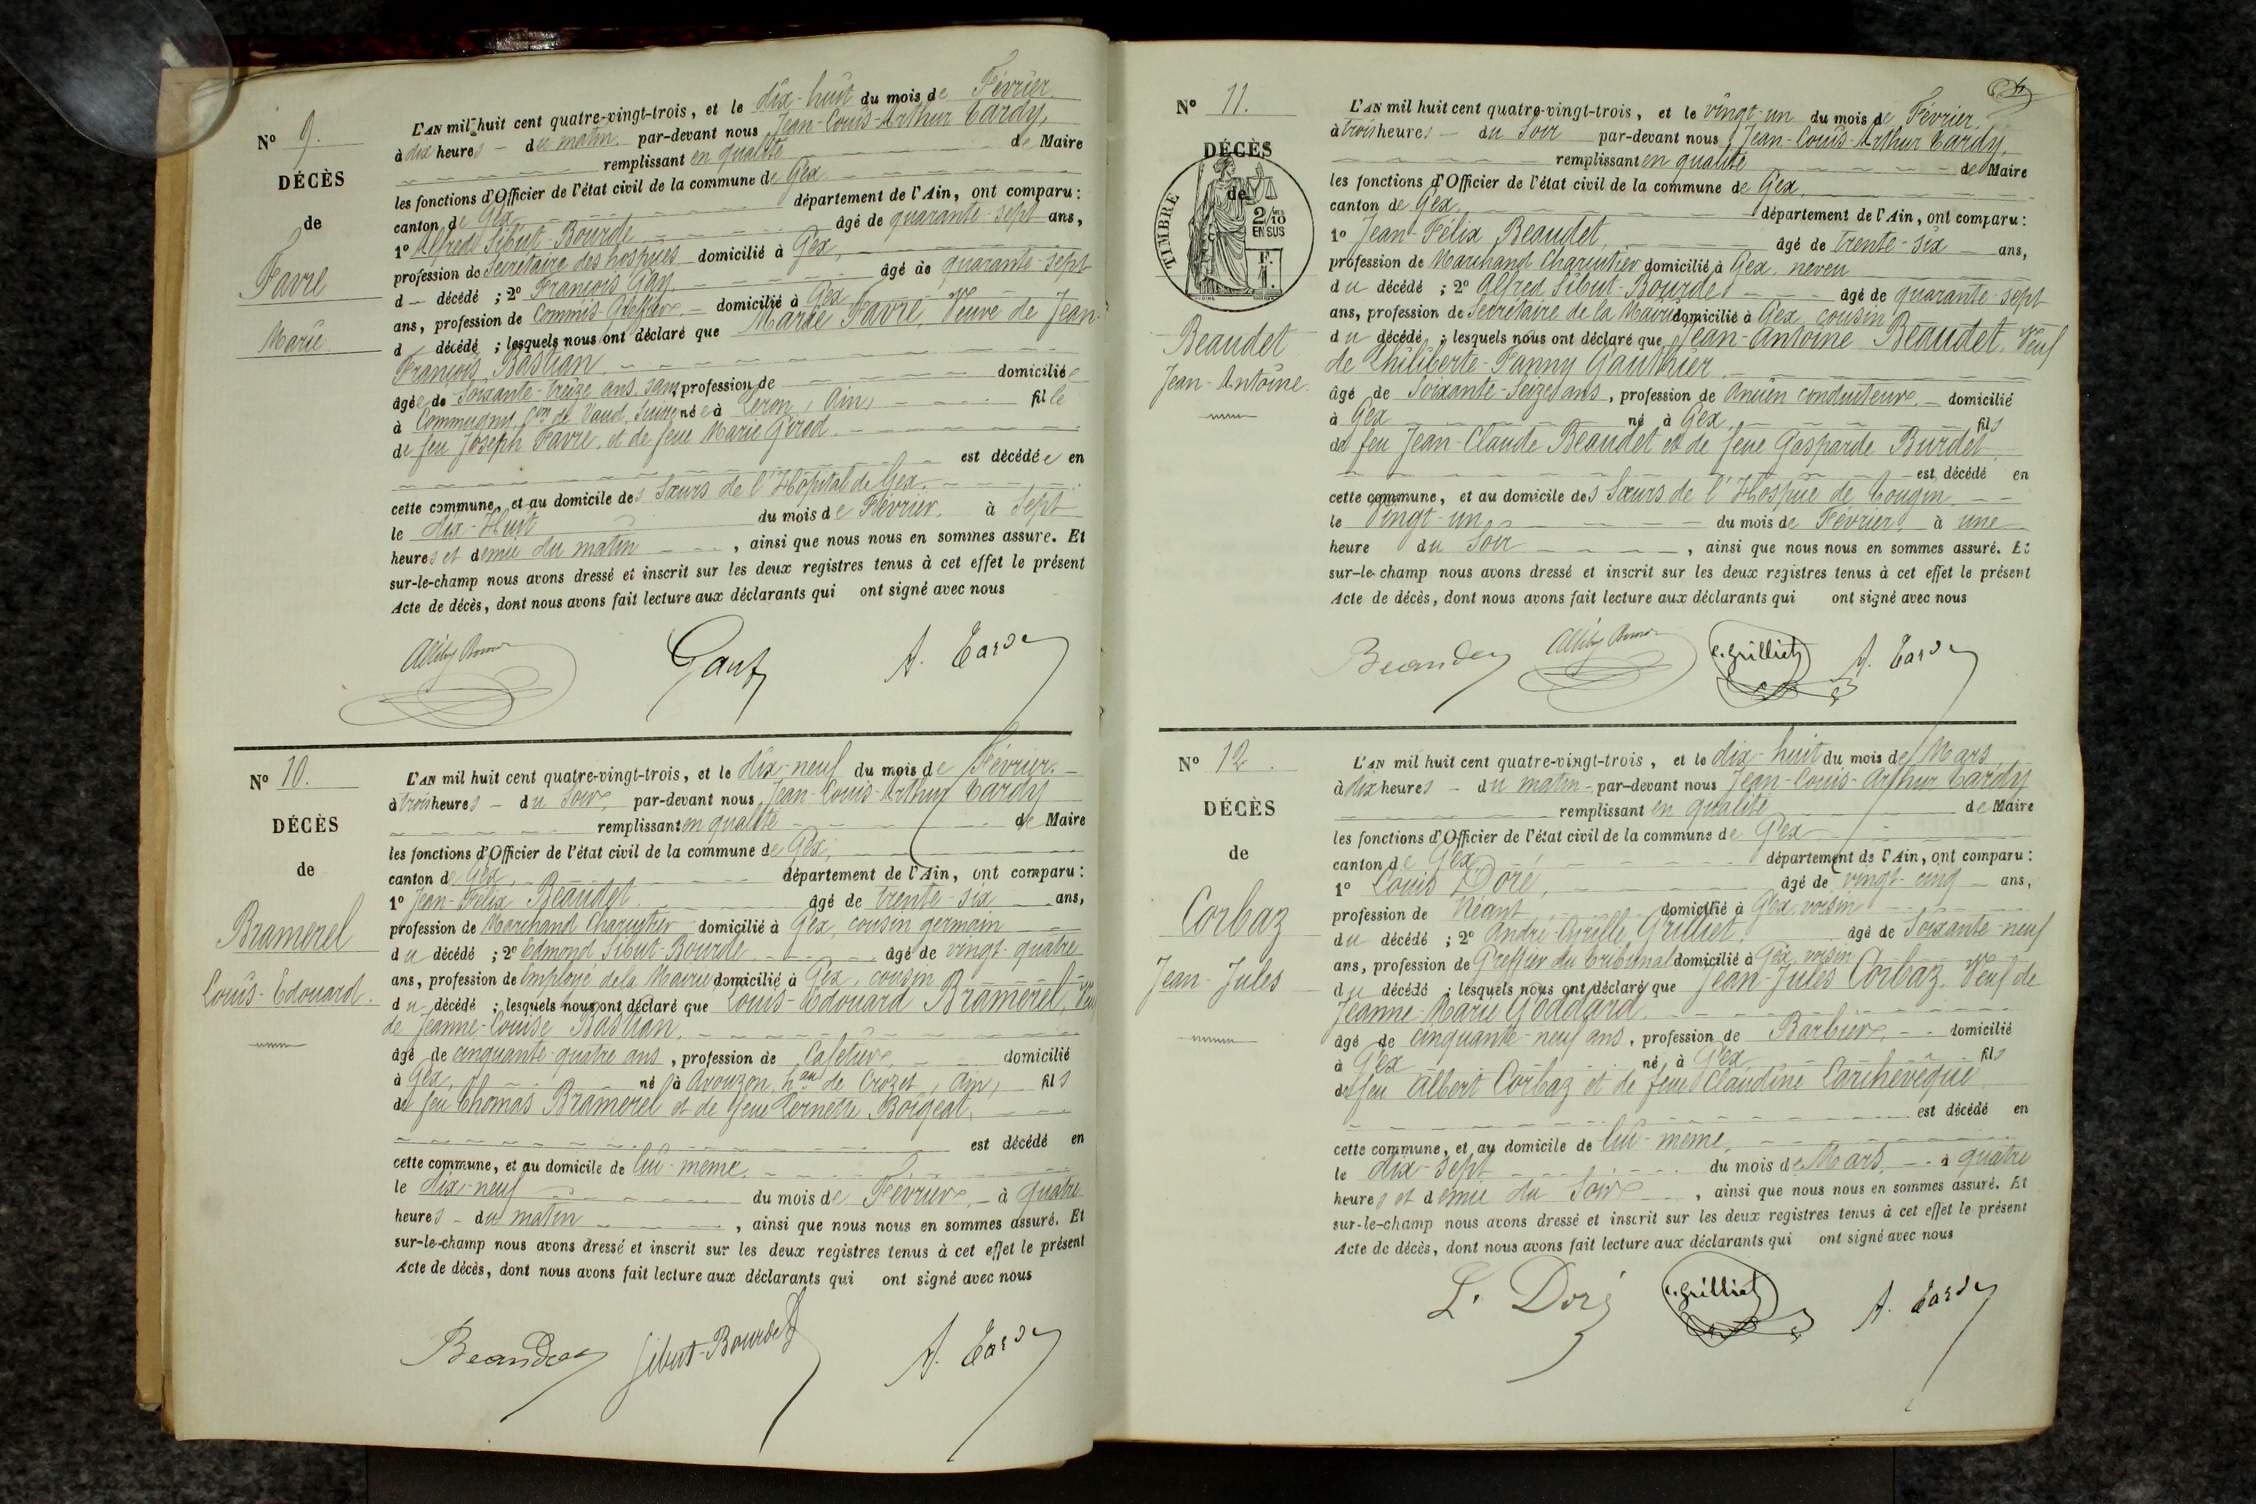 N° 9.
DÉCÈS
de
Favre
Marie
L'AN mil huit cent quatre-vingt-trois, et le dix-huit du mois de Février
à dix heures - du matin par-devant nous Jean-Louis-Arthur Tardy,
remplissant en qualité de Maire
les fonctions d'Officier de l'état civil de la commune de Gex
canton de Gex département de l'Ain, ont comparu :
1° Alfred Sibut-Bourde âgé de quarante-sept ans,
profession de Secrétaire des hospices domicilié à Gex,
d décédé ; 2° François Gay âgé de quarante-sept
ans, profession de Commis-Greffier domicilié à Gex
d décédé ; lesquels nous ont déclaré que Marie Favre, Veuve de Jean-
François Bastian
âgée de Soixante-treize ans, sans profession de domiciliée
à Commugny, Con de Vaud, Suisse née à (Ain) fille
de feu Joseph Favre, et de feue Marie Girod
est décédée en
cette commune, et au domicile des Sœurs de l'Hôpital de Gex.
le dix-Huit du mois de Février, à Sept
heures et demie du matin, ainsi que nous nous en sommes assuré. Et
sur-le-champ nous avons dressé et inscrit sur les deux registres tenus à cet effet le présent
Acte de décès, dont nous avons fait lecture aux déclarants qui ont signé avec nous
A. Tardy
N° 10.
DÉCÈS
de
Bramerel
Louis-Edouard.
L'AN mil huit cent quatre-vingt-trois, et le dix-neuf du mois de Février.
à trois heures - du Soir, par-devant nous Jean-Louis-Arthur Tardy
remplissant en qualité de Maire
les fonctions d'Officier de l'état civil de la commune de Gex,
canton de Gex, département de l'Ain, ont comparu :
1° Jean-Félix Beaudet âgé de trente-six ans,
profession de Marchand Charcutier domicilié à Gex, cousin germain
du décédé ; 2° Edmond Sibut-Bourde âgé de vingt-quatre
ans, profession de Employé de la Mairie domicilié à Gex, cousin
du décédé ; lesquels nous ont déclaré que Louis-Edouard Bramerel, Veuf
de Jeanne-Louise Bastian.
âgé de cinquante-quatre ans, profession de Cafetier, domicilié
à Gex, né à Avouzon, hau de Crozet, (Ain) fils
de feu Thomas Bramerel et de feue Pernette Boigeat,
est décédé en
cette commune, et au domicile de lui-même.
le dix-neuf du mois de Février, à quatre
heures - du matin, ainsi que nous nous en sommes assuré. Et
sur-le-champ nous avons dressé et inscrit sur les deux registres tenus à cet effet le présent
Acte de décès, dont nous avons fait lecture aux déclarants qui ont signé avec nous
Beaudet Sibut-Bourde A. Tardy
N° 11.
DÉCÈS
de
TIMBRE
2/10
EN SUS
Beaudet
Jean-Antoine.
L'AN mil huit cent quatre-vingt-trois, et le vingt-un du mois de Février.
à trois heures - du Soir par-devant nous Jean-Louis-Arthur Tardy,
remplissant en qualité de Maire
les fonctions d'Officier de l'état civil de la commune de Gex,
canton de Gex, département de l'Ain, ont comparu :
1° Jean-Félix Beaudet, âgé de trente-six ans,
profession de Marchand Charcutier domicilié à Gex, neveu
du décédé ; 2° Alfred Sibut-Bourde, âgé de quarante-sept
ans, profession de Secrétaire de la Mairie domicilié à Gex, cousin
du décédé ; lesquels nous ont déclaré que Jean-Antoine Beaudet, Veuf
de Philiberte-Fanny Gauthier
âgé de Soixante-Seize ans, profession de Ancien conducteur, domicilié
à Gex né à Gex fils
de feu Jean-Claude Beaudet et de feue Gasparde Burdet,
est décédé en
cette commune, et au domicile des Sœurs de l'Hospice de Tougin
le Vingt-un du mois de Février, à une
heure du Soir, ainsi que nous nous en sommes assuré. Et
sur-le-champ nous avons dressé et inscrit sur les deux registres tenus à cet effet le présent
Acte de décès, dont nous avons fait lecture aux déclarants qui ont signé avec nous
Beaudet C. Grilliet A. Tardy
N° 12.
DÉCÈS
de
Corbaz
Jean-Jules
L'AN mil huit cent quatre-vingt-trois, et le dix-huit du mois de Mars
à dix heures - du matin - par-devant nous Jean-Louis-Arthur Tardy
remplissant en qualité de Maire
les fonctions d'Officier de l'état civil de la commune de Gex
canton de Gex département de l'Ain, ont comparu :
1° Louis Doré, âgé de vingt-cinq ans,
profession de Néant domicilié à Gex, voisin
du décédé ; 2° André-Cyrille Grilliet, âgé de Soixante-neuf
ans, profession de Greffier du tribunal domicilié à Gex, voisin
du décédé ; lesquels nous ont déclaré que Jean-Jules Corbaz, Veuf de
Jeanne-Marie Goddard
âgé de cinquante-neuf ans, profession de Barbier, domicilié
à Gex né à Gex fils
de feu Albert Corbaz et de feue Claudine Larchevêque
est décédé en
cette commune, et au domicile de lui-même,
le dix-sept du mois de Mars, à quatre
heures et demie du Soir, ainsi que nous nous en sommes assuré. Et
sur-le-champ nous avons dressé et inscrit sur les deux registres tenus à cet effet le présent
Acte de décès, dont nous avons fait lecture aux déclarants qui ont signé avec nous
L. Doré C. Grilliet A. Tardy